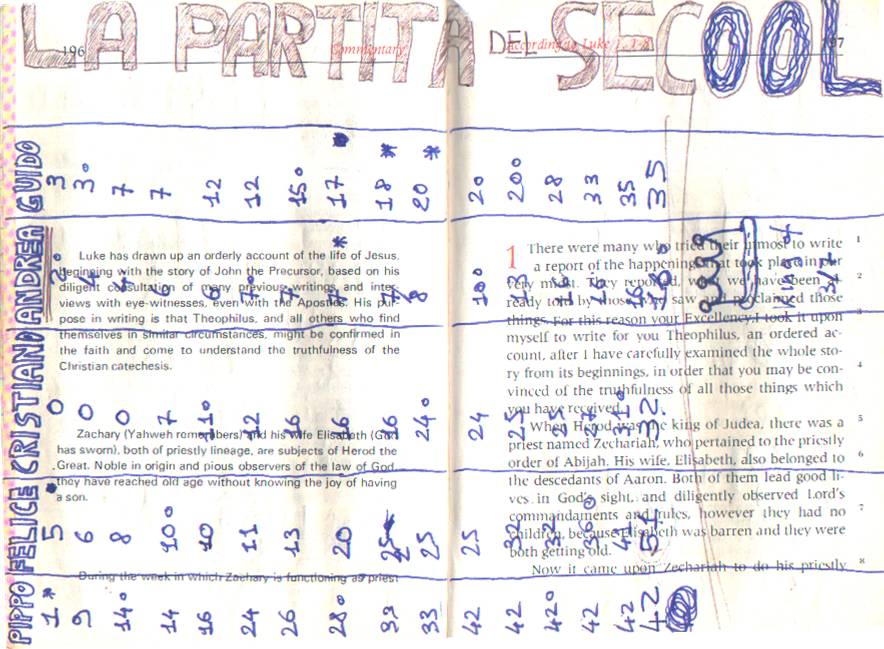 LA PARTITA DEL SECOOL
196 Commentary
According to Luke 1, 197
GUIDO 3 3° 7 7 12 12 15° 17 18 20 20 20° 28 33 35 35
ANDREA 2° 4
CRISTIAN 0 0 0 7 11° 12 16 16 16 24° 24 25 25 27 31° 32
FELICE 5 6 8 10° 10 11 13 20 25 25 25 32 32 36° 41 51
PIPPO 1* 9 14° 14 16 24 26 28° 33 33 42 42 42° 42 42 42
Luke has drawn up an orderly account of the life of Jesus,
beginning with the story of John the Precursor, based on his
diligent consultation of many previous writings, and inter
views with eye-witnesses, even with the Apostles. His pur-
pose in writing is that Theophilus, and all others who find
themselves in similar circumstances, might be confirmed in
the faith and come to understand the truthfulness of the
Christian catechesis.
Zachary (Yahweh remembers) and his wife Elisabeth (God
has sworn), both of priestly lineage, are subjects of Herod the
Great. Noble in origin and pious observers of the law of God,
they have reached old age without knowing the joy of having
a son.
During the week in which Zachary is functioning as priest
1 There were many who tried their utmost to write 1
a report of the happenings that took place in our
very midst. They reported, what we have been al- 2
ready told by those who saw and proclaimed those
things. For this reason your Excellency, I took it upon 3
myself to write for you Theophilus, an ordered ac-
count, after I have carefully examined the whole sto-
ry from its beginnings, in order that you may be con- 4
vinced of the truthfulness of all those things which
you have received.
When Herod was the king of Judea, there was a 5
priest named Zechariah, who pertained to the priestly
order of Abijah. His wife, Elisabeth, also belonged to 6
the descedants of Aaron. Both of them lead good li-
ves in God's sight, and diligently observed Lord's
commandaments and rules, however they had no 7
children, because Elisabeth was barren and they were
both getting old.
Now it came upon Zechariah to do his priestly 8